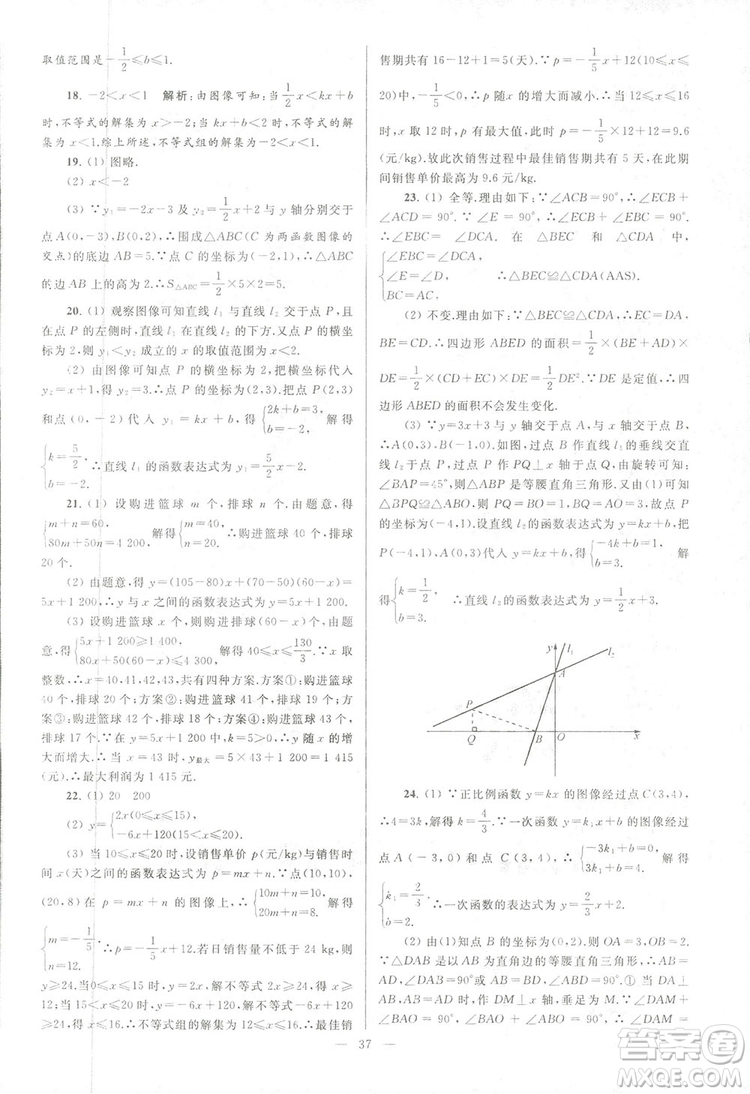 取值范围是−1/2≤b≤1.
18. −2<x<1 解析:由图像可知:当1/2x<kx+b
时,不等式的解集为x>−2;当kx+b<2时,不等式的解
集为x<1.综上所述,不等式组的解集为−2<x<1.
19. (1) 图略.
(2) x<−2
(3) ∵y₁=−2x−3及y₂=1/2x+2与y轴分别交于
点A(0,−3),B(0,2),∴围成△ABC(C为两函数图像的
交点)的底边AB上的高为2.∴S△ABC=1/2×5×2=5.
20. (1) 观察图像可知直线l₁与直线l₂交于点P,且
在点P的左侧时,直线l₁在直线l₂的下方.又点P的横坐
标为2,∴y₁<y₂成立的x的取值范围为x<2.
(2) 由图像可知点P的横坐标为2,将横坐标代入
y₁=x+1,得y₁=2+1=3.∴点P的坐标为(2,3).将(2,3)
和点(0,−2)代入y₂=kx+b,得{2k+b=3, b=−2. 解得
{k=5/2, b=−2. ∴直线l₂的函数表达式为y₂=5/2x−2.
21. (1) 设购进篮球m个,排球n个,由题意,得
{m+n=60, 80m+50n=4 200, 解得{m=40, n=20. ∴购进篮球40个,排球
20个.
(2) 由题意,得y=(105−80)x+(70−50)(60−x)=
5x+1 200.∴y与x之间的函数表达式为y=5x+1 200.
(3) 设购进篮球x个,则购进排球(60−x)个.由题意,
得{5x+1 200≥1 400, 80x+50(60−x)≤4 300. 解得40≤x≤130/3.∵x取
整数,∴x=40,41,42,43,共有四种方案.方案①:购进篮球
40个,排球20个;方案②:购进篮球41个,排球19个;方案
③:购进篮球42个,排球18个;方案④:购进篮球43个,排
球17个.∵在y=5x+1 200中,k=5>0,∴y随x的增
大而增大.∴当x=43时,y最大=5×43+1 200=1 415
(元).∴最大利润为1 415元.
22. (1) 20 200
(2) y={2x(0≤x≤15), −6x+120(15<x≤20).
(3) 当10≤x≤20时,设销售单价p(元/kg)与销售时间
x(天)之间的函数表达式为p=mx+n.∵点(10,10),
(20,8)在p=mx+n的图像上,∴{10m+n=10, 20m+n=8. 解得
{m=−1/5, n=12. ∴p=−1/5x+12.若若日销售量不低于24 kg,则
y≥24.当0≤x≤15时,y=2x,解不等式2x≥24,得x≥
12.当15<x≤20时,y=−6x+120,解不等式−6x+120≥
24,得x≤16.∴不等式组的解集为12≤x≤16.∴最佳销
售期共有16−12+1=5(天).∵p=−1/5x+12(10≤x≤
20)中,−1/5<0,∴p随x的增大而减小.∴当12≤x≤16
时,x取12时,p有最大值,此时p=−1/5×12+12=9.6
(元/kg).故此次销售过程中最佳销售期共有5天,在此期
间销售单价最高为9.6元/kg.
23. (1) 全等.理由如下:∵∠ACB=90°,∴∠ECB+
∠ACD=90°.∵∠E=90°,∴∠ECB+∠EBC=90°.
∴∠EBC=∠DCA.在△BEC和△CDA中,
{∠E=∠D, ∠EBC=∠DCA, BC=AC, ∴△BEC≌△CDA(AAS).
(2) 不变.理由如下:∵△BEC≌△CDA,∴BE=CD.∴四边形ABED的面积=1/2(AD+
BE)·DE=1/2DE·DE=1/2DE².∵DE不变,∴四
边形ABED的面积不会发生变化.
(3) ∵y=3x+3与x轴交于点B,与y轴交于点A,
∴A(0,3),B(−1,0).过点B作直线l₁的垂线交直线l₂
于点P,过点P作PQ⊥x轴于点Q,由旋转可得
∠BAP=45°,∴△ABP是等腰直角三角形.
P(−4,1),A(0,3)代入y=kx+b,得{−4k+b=1, b=3. 解
得{k=1/2, b=3. ∴直线l₂的函数表达式为y=1/2x+3.
y l₁ l₂
A
P
Q B O x
24. (1) ∵正比例函数y=kx的图像经过点C(3,4),
∴4=3k,解得k=4/3.∵一次函数y=k₁x+b的图像经过
点A(−3,0)和点C(3,4),∴{−3k₁+b=0, 3k₁+b=4. 解得
b=2.∴一次函数的表达式为y=2/3x+2.
(2) 由(1)知点B的坐标为(0,2).∴OA=3,BO=2.
37
答案圈
MXQE.COM